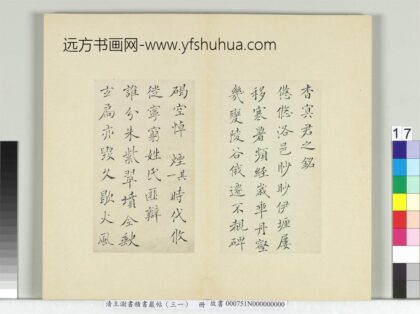 远方书画网-www.yfshuhua.com
杳冥君之銘
悠悠洛邑眇眇伊瀍屢
移寒暑頻經歲年丹壑
幾變陵谷俄遷不覩碑
碣空悼 煙其一時代攸
徙寧窮姓氏匪辯
誰分朱紫翠墳全缺
玄扃亦毀久歇火風
17
清王澍書積書巖帖(三一) 冊 故書 000751N000000000